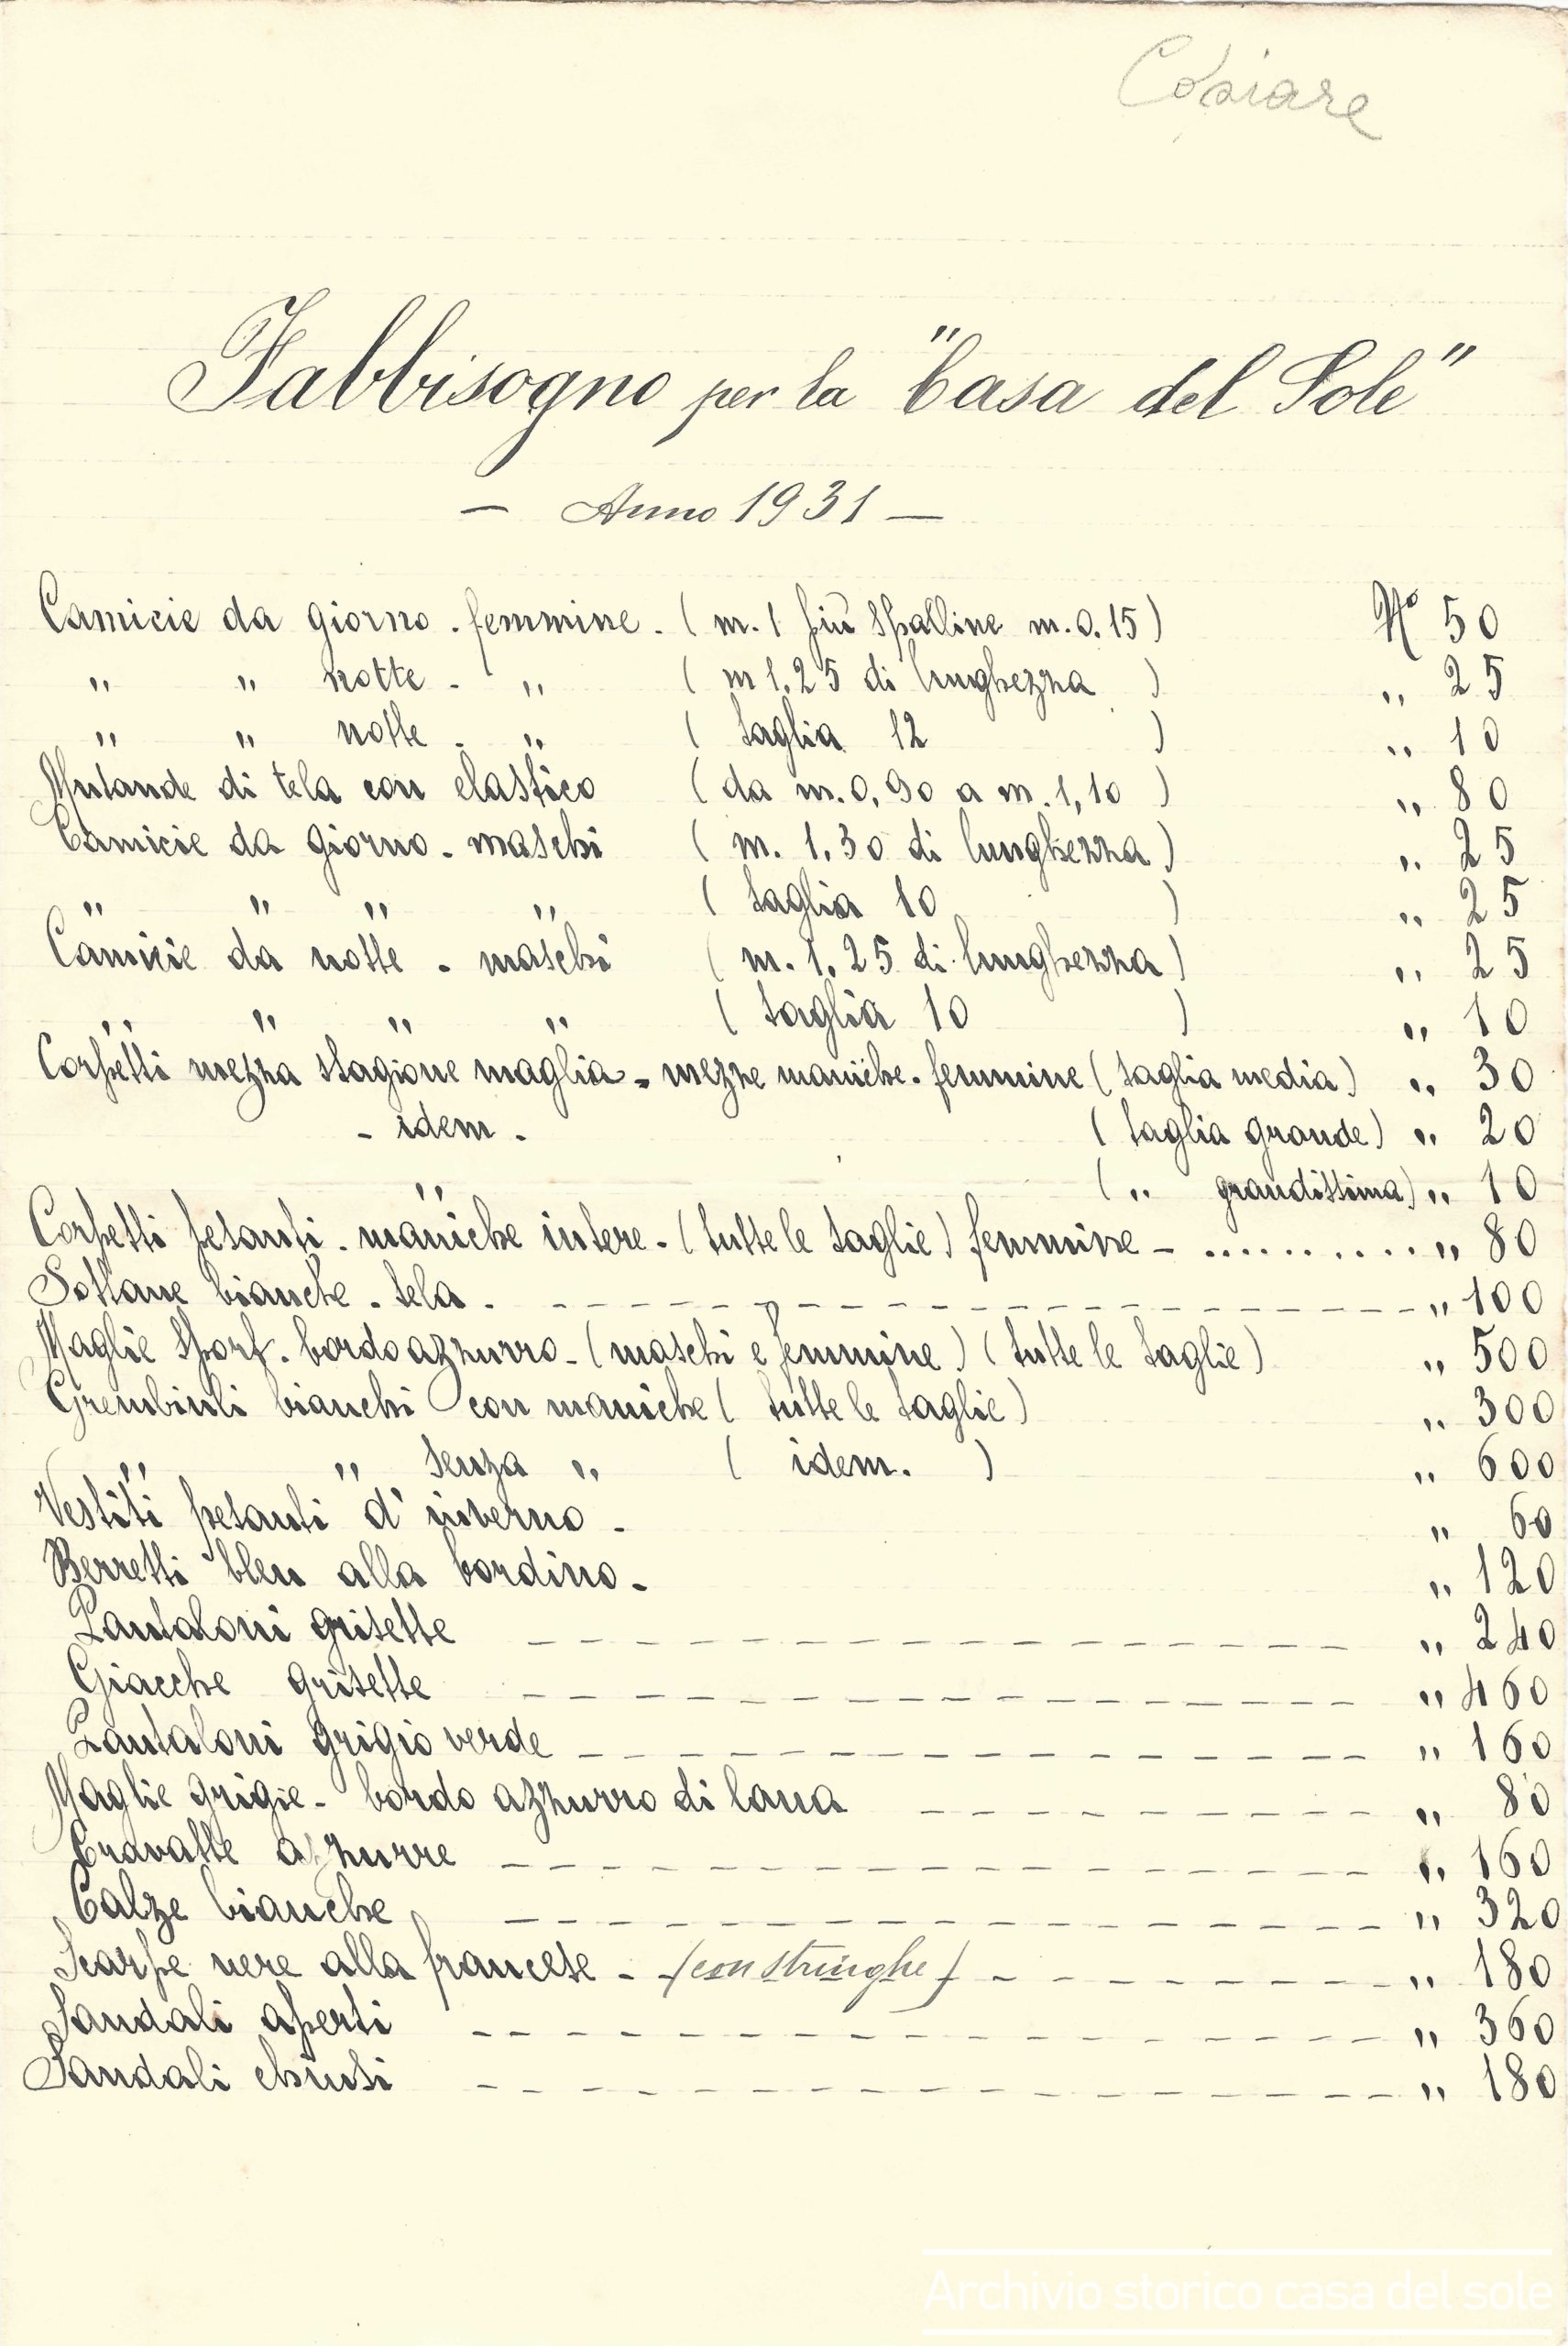 Copiare
Fabbisogno per la "Casa del Sole"
- Anno 1931 -
Camicie da giorno - femmine - ( m. 1 più spalline m. 0.15 ) N° 50
" " notte - " ( m 1.25 di lunghezza ) " 25
" " notte - " ( taglia 12 ) " 10
Mutande di tela con elastico ( da m. 0,90 a m. 1,10 ) " 80
Camicie da giorno - maschi ( m. 1,30 di lunghezza ) " 25
" " " " ( taglia 10 ) " 25
Camicie da notte - maschi ( m. 1.25 di lunghezza ) " 25
" " " " ( taglia 10 ) " 10
Corpetti mezza stagione maglia - mezze maniche - femmine ( taglia media ) " 30
- idem - ( taglia grande ) " 20
" ( " grandissima ) " 10
Corpetti pesanti - maniche intere - ( tutte le taglie ) femmine - .......... " 80
Sottane bianche - tela - " 100
Maglie Sport - bordo azzurro - ( maschi e femmine ) ( tutte le taglie ) " 500
Grembiuli bianchi con maniche ( tutte le taglie ) " 300
" " senza " ( idem. ) " 600
Vestiti pesanti d'inverno - " 60
Berretti bleu alla bordino - " 120
Pantaloni grisette " 240
Giacche grisette " 460
Pantaloni grigio verde " 160
Maglie grigie - bordo azzurro di lana " 80
Cravatte azzurre " 160
Calze bianche " 320
Scarpe nere alla francese - (con stringhe) - " 180
Sandali aperti " 360
Sandali chiusi " 180
Archivio storico casa del sole